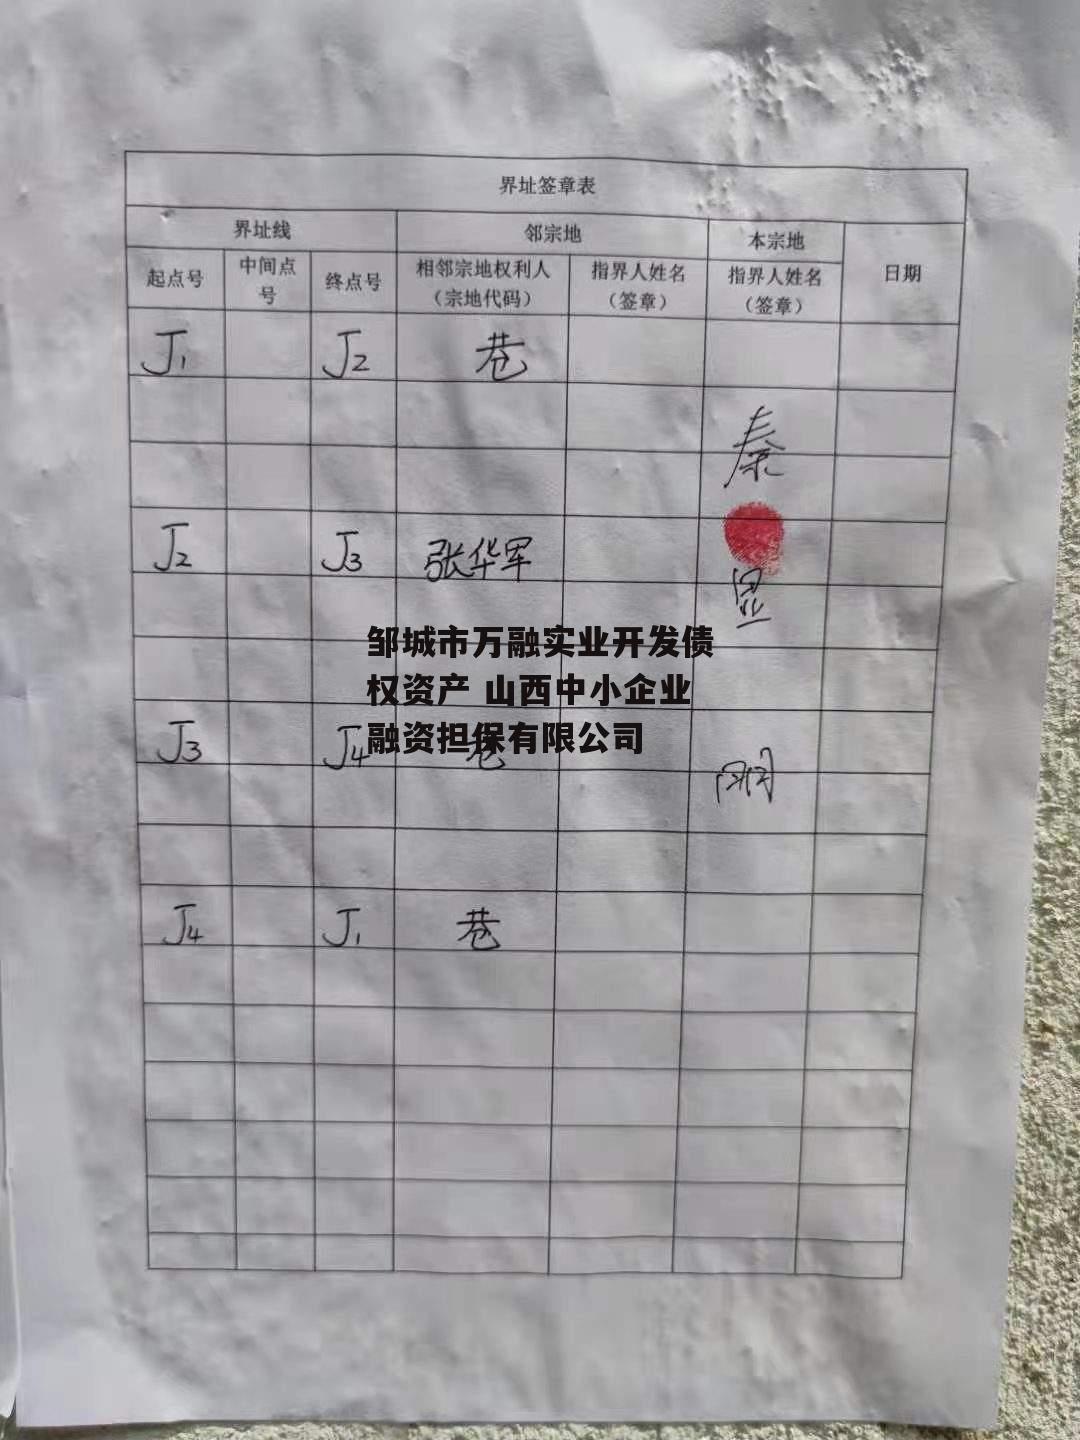 界址签章表
界址线 邻宗地 本宗地 日期
起点号 中间点号 终点号 相邻宗地权利人（宗地代码） 指界人姓名（签章） 指界人姓名（签章）
J1 J2 巷
秦
J2 J3 张华军
显
邹城市万融实业开发债
权资产 山西中小企业
融资担保有限公司
J3 J4 巷
刚
J4 J1 巷